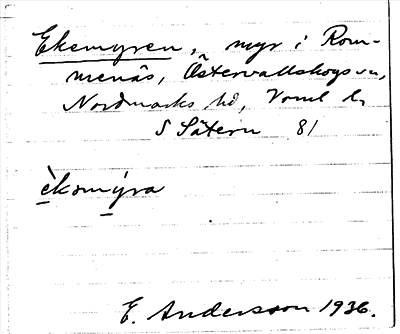 Eksmyren, myr i Rom-
menäs, Östervallskogs sn,
Nordmarks hd, Vrml l.
S Sätern 81
èksmýra
E. Andersson 1936.